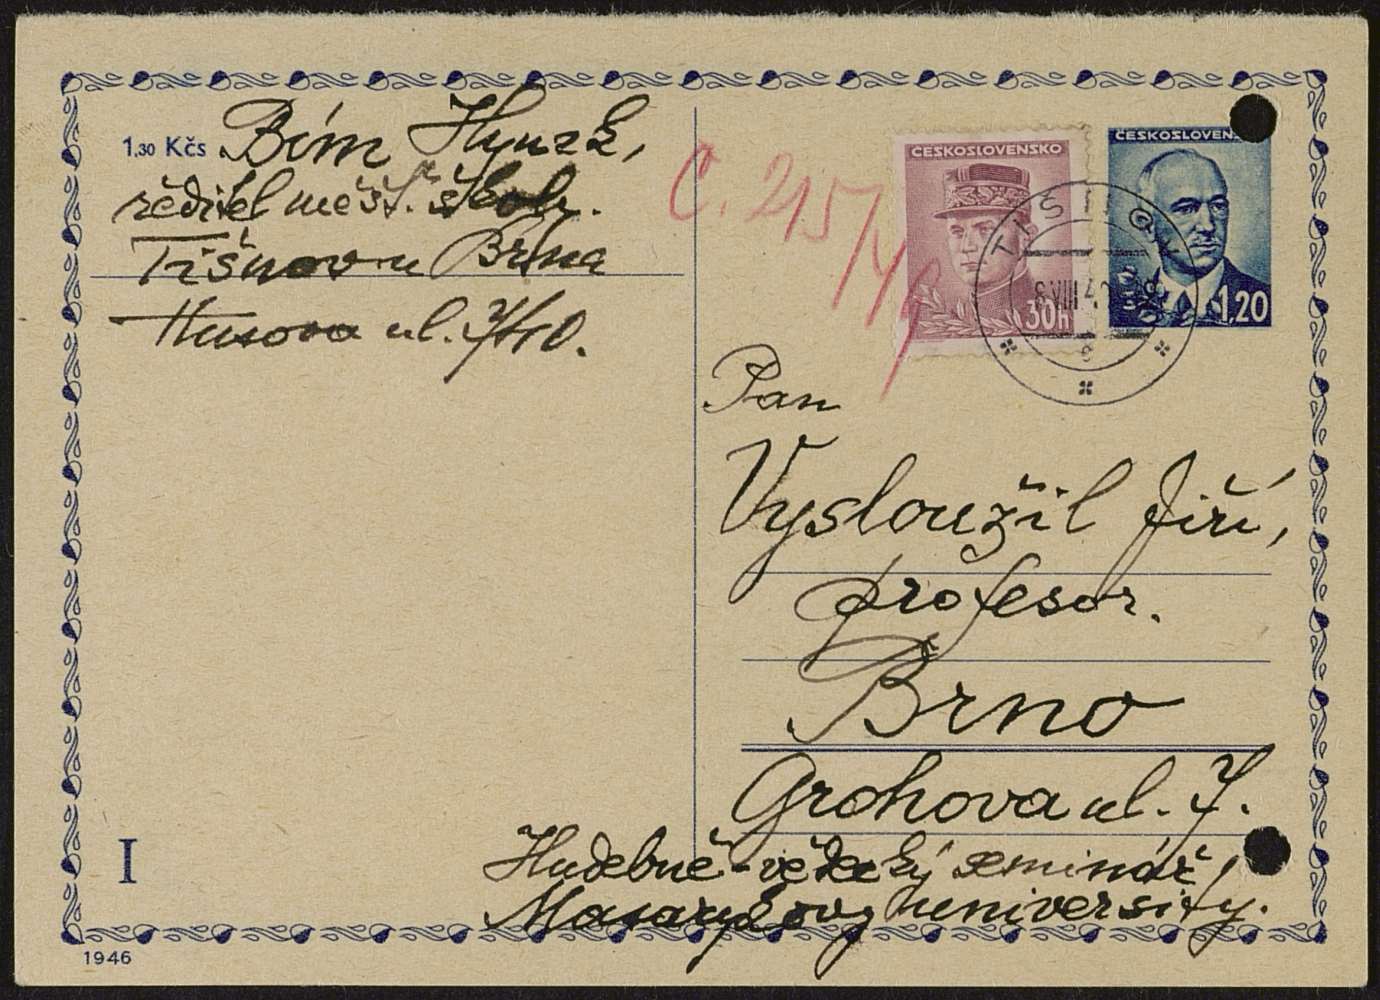 1.30 Kčs
Bím Hynek,
ředitel měšť. školy.
Tišnov u Brna
Husova ul.
Č. 215/
ČESKOSLOVENSKO
30h
ČESKOSLOVEN
1.20
TIŠNOV
VIII
Pan
Vysloužil Jiří,
profesor.
Brno
Grohova ul. 7.
Hudebně-vědecký seminář
Masarykovy university.
I
1946